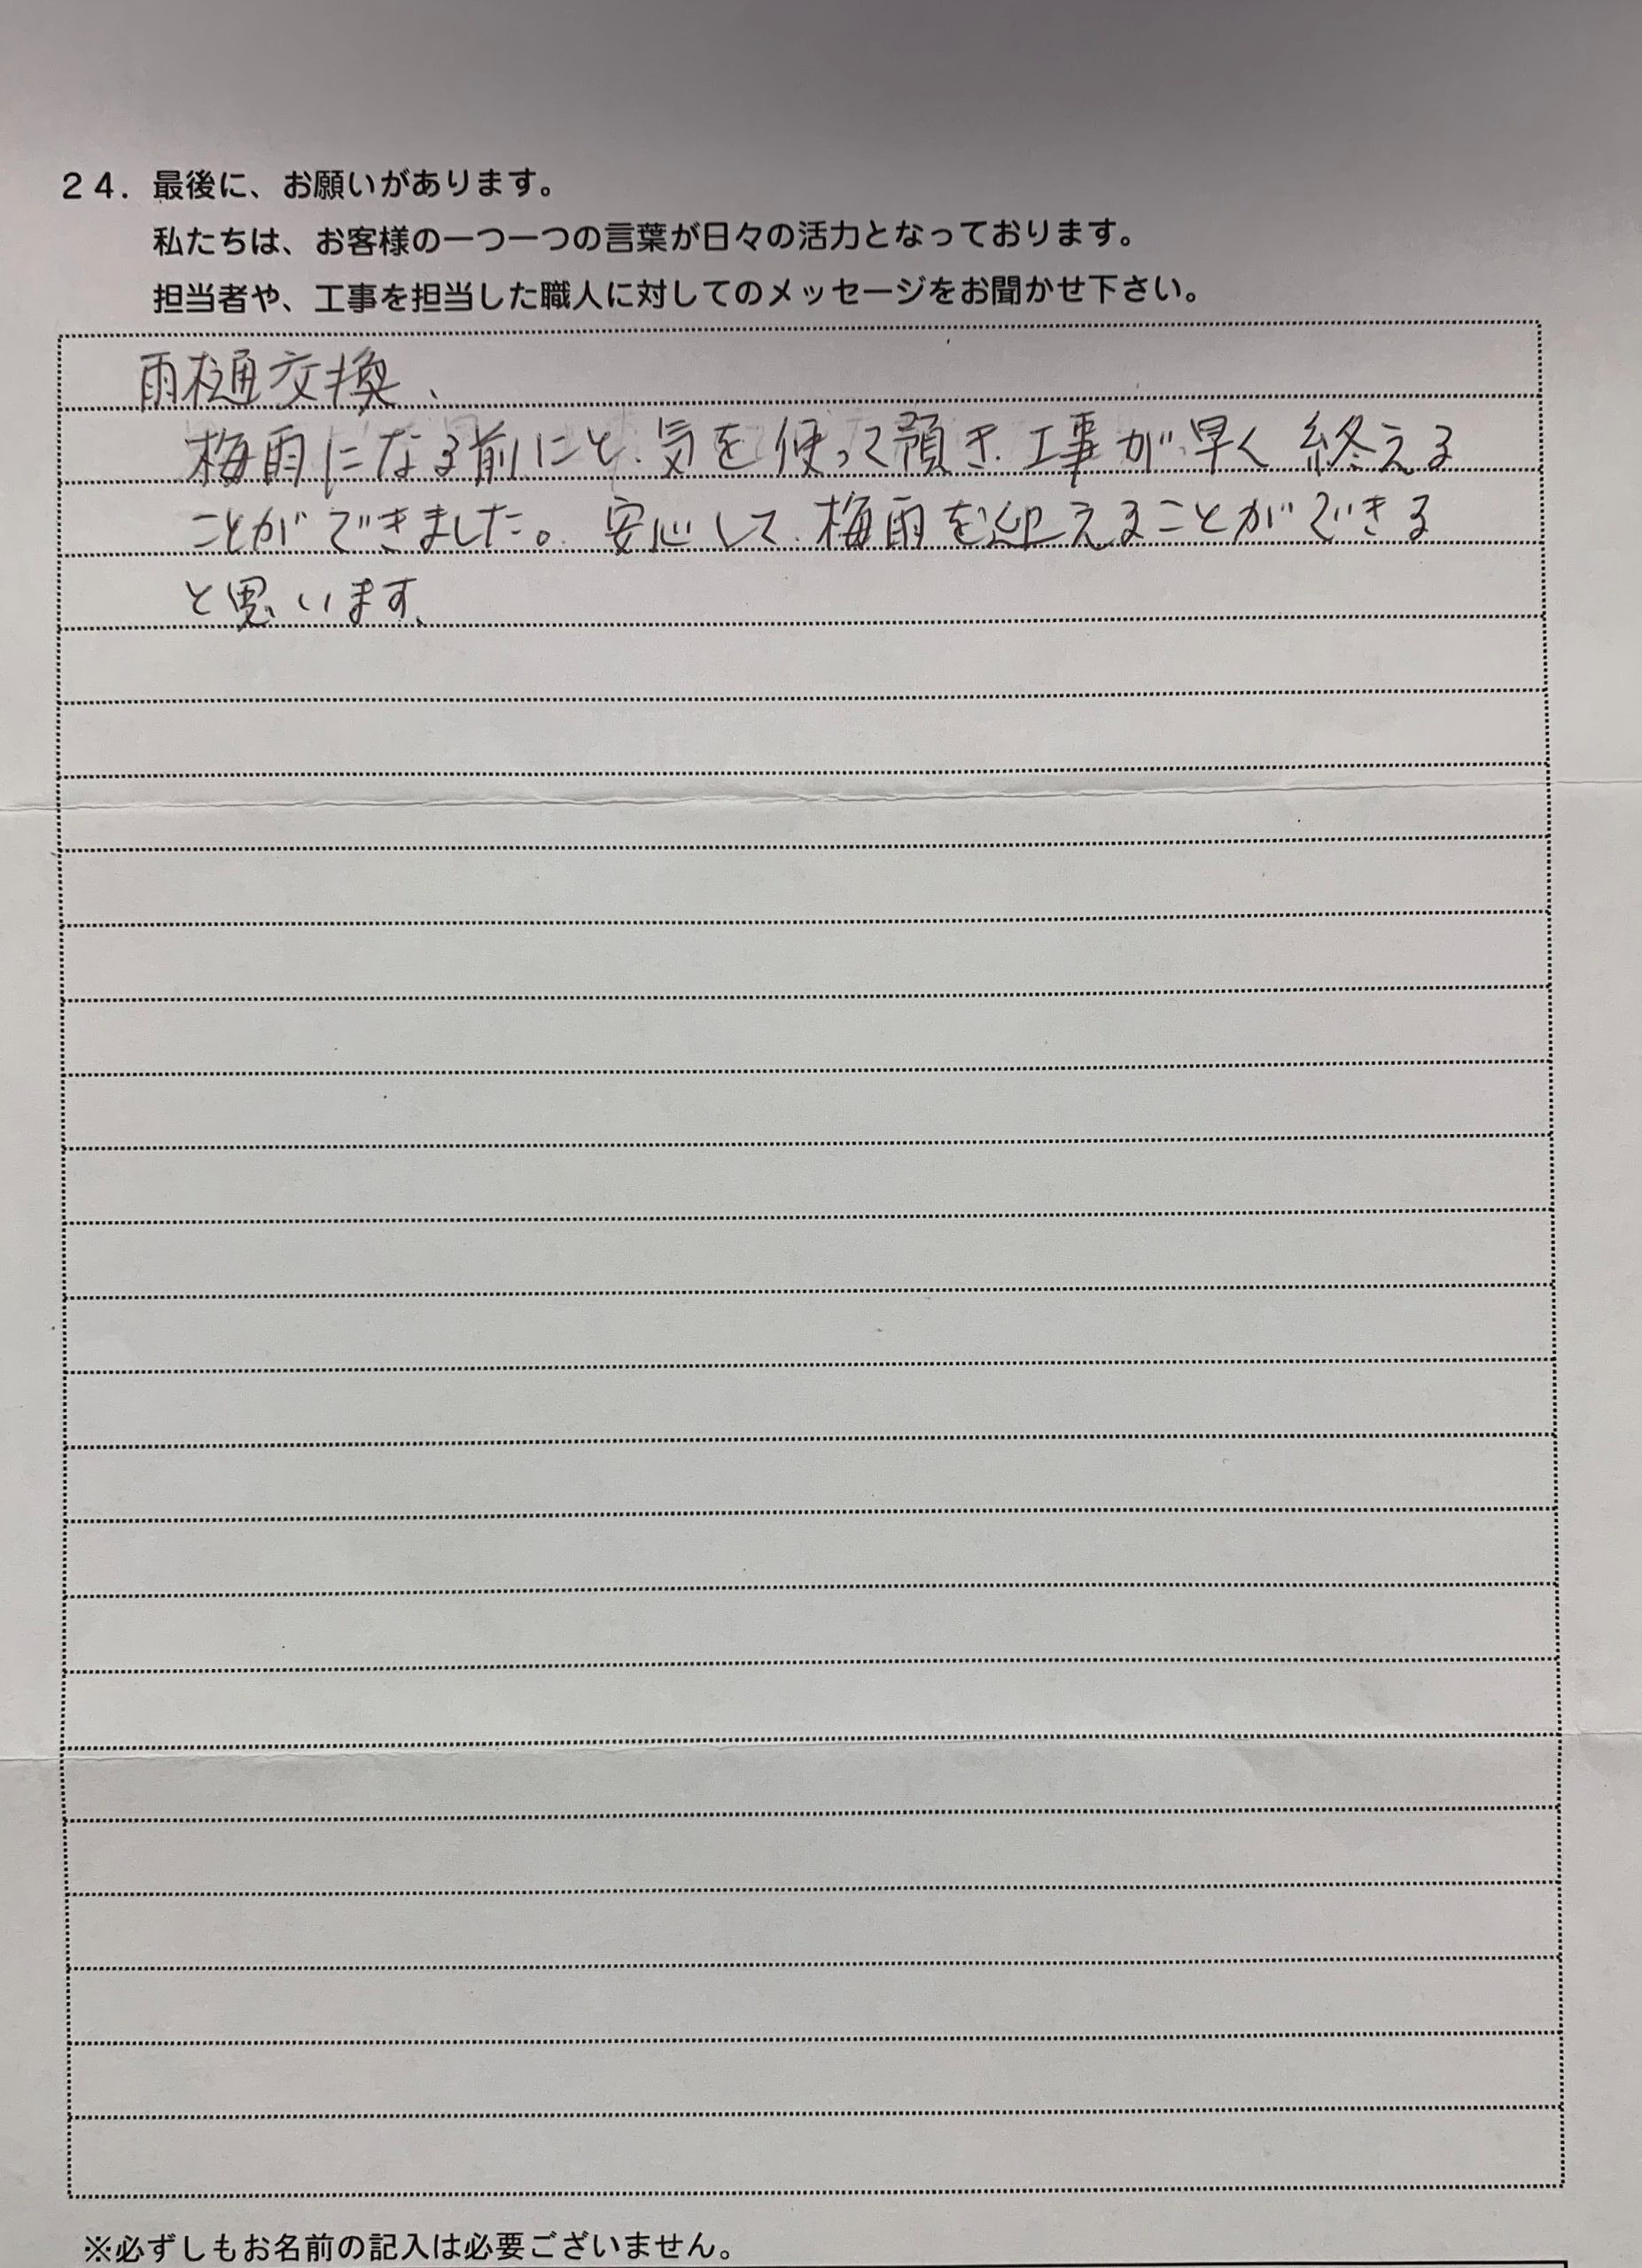 ２４．最後に、お願いがあります。
私たちは、お客様の一つ一つの言葉が日々の活力となっております。
担当者や、工事を担当した職人に対してのメッセージをお聞かせ下さい。
雨樋交換、
梅雨になる前にと、気を使って頂き、工事が早く終える
ことができました。安心して、梅雨を迎えることができる
と思います、
※必ずしもお名前の記入は必要ございません。